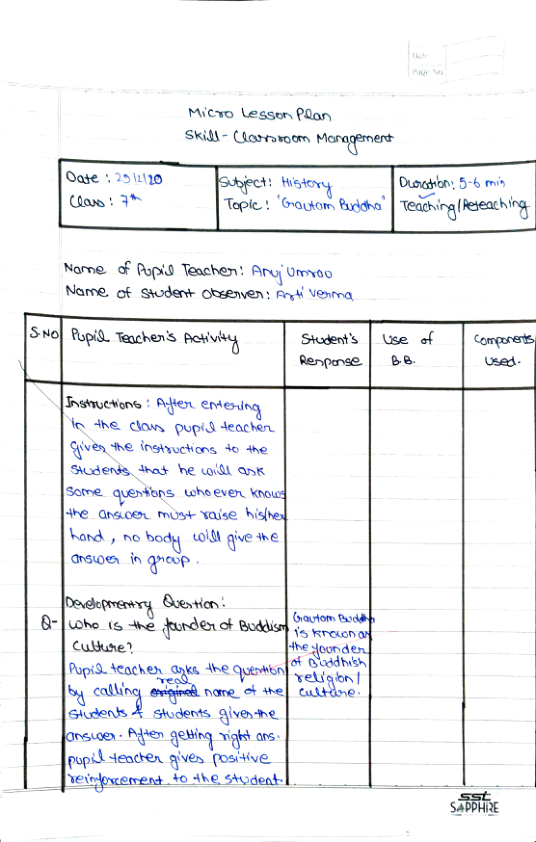 Date
Page No.
Micro Lesson Plan
Skill - Classroom Management
Date : 29/12/20
Class : 7th
Subject: History
Topic: 'Gautam Buddha'
Duration: 5-6 min
Teaching/Reteaching
Name of Pupil Teacher: Anuj Umrao
Name of Student Observer: Arti Verma
S.NO
Pupil Teacher's Activity
Student's
Response
Use of
B.B.
Components
Used.
Instructions : After entering
in the class pupil teacher
gives the instructions to the
students that he will ask
some questions whoever knows
the answer must raise his/her
hand, no body will give the
answer in group.
Developmentry Question:
Q- Who is the founder of Buddism
Culture?
Pupil teacher asks the question
by calling original real name of the
students & students gives the
answer. After getting right ans.
pupil teacher gives positive
reinforcement to the student.
Gautam Buddha
is known as
the founder
of Buddhish
religion/
culture.
sst
SAPPHIRE